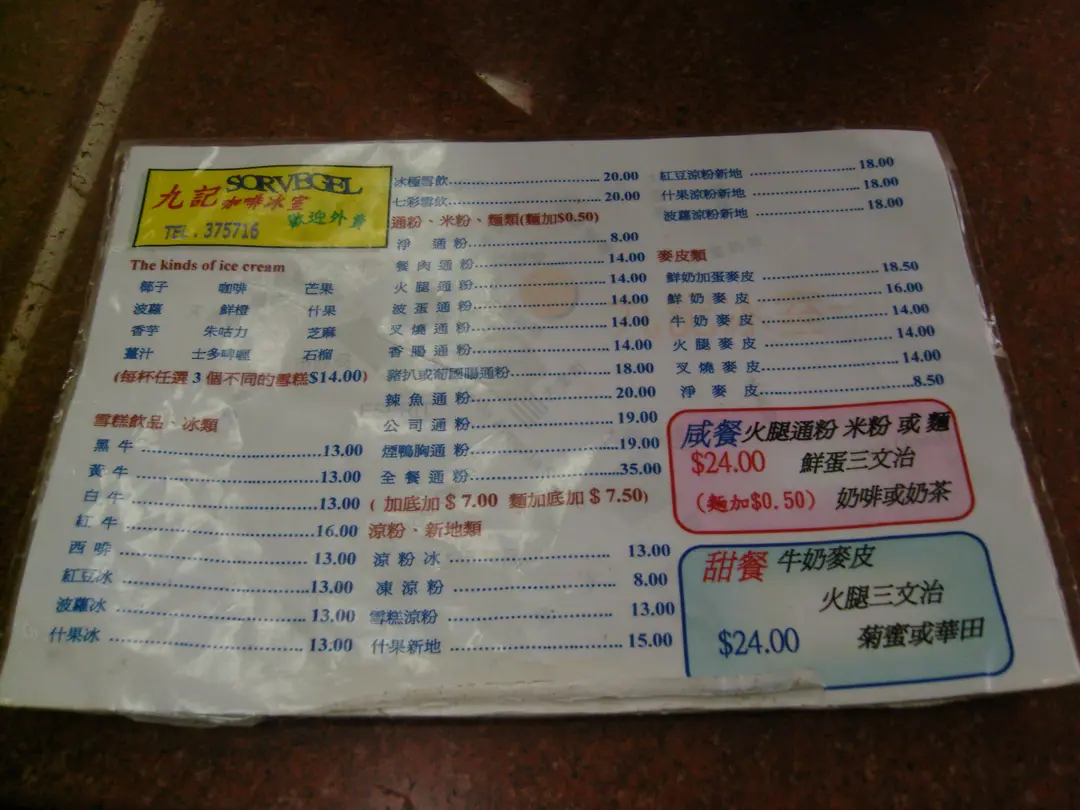 九記 SORVEGEL
咖啡冰室
歡迎外賣
TEL. 375716
The kinds of ice cream
椰子 咖啡 芒果
波蘿 鮮橙 什果
香芋 朱咕力 芝麻
薑汁 士多啤梨 石榴
(每杯任選 3 個不同的雪糕$14.00)
雪糕飲品、冰類
黑牛 13.00
黃牛 13.00
白牛 13.00
紅牛 16.00
西啡 13.00
紅豆冰 13.00
波蘿冰 13.00
什果冰 13.00
冰極雪飲 20.00
七彩雪飲 20.00
通粉、米粉、麵類(麵加$0.50)
淨通粉 8.00
餐肉通粉 14.00
火腿通粉 14.00
波蛋通粉 14.00
叉燒通粉 14.00
香腸通粉 14.00
豬扒或葡國腸通粉 18.00
辣魚通粉 20.00
公司通粉 19.00
煙鴨胸通粉 19.00
全餐通粉 35.00
( 加底加 $ 7.00 麵加底加 $ 7.50)
涼粉、新地類
涼粉冰 13.00
凍涼粉 8.00
雪糕涼粉 13.00
什果新地 15.00
紅豆涼粉新地 18.00
什果涼粉新地 18.00
波蘿涼粉新地 18.00
麥皮類
鮮奶加蛋麥皮 18.50
鮮奶麥皮 16.00
牛奶麥皮 14.00
火腿麥皮 14.00
叉燒麥皮 14.00
淨麥皮 8.50
咸餐 火腿通粉 米粉 或 麵
$24.00 鮮蛋三文治
(麵加$0.50) 奶啡或奶茶
甜餐 牛奶麥皮
火腿三文治
$24.00 菊蜜或華田